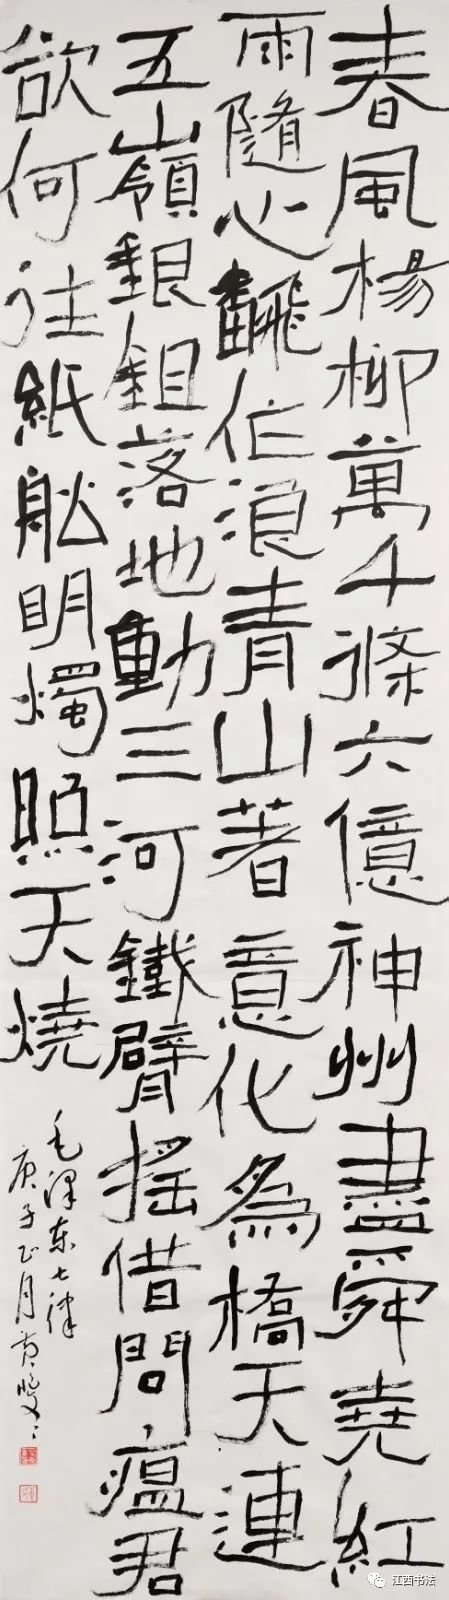 春風楊柳萬千條六億神州盡舜堯紅
雨隨心飜作浪青山著意化為橋天連
五嶺銀鉏落地動三河鐵臂摇借問瘟君
欲何往紙舩明燭照天燒
毛泽东七律
庚子正月
江西书法